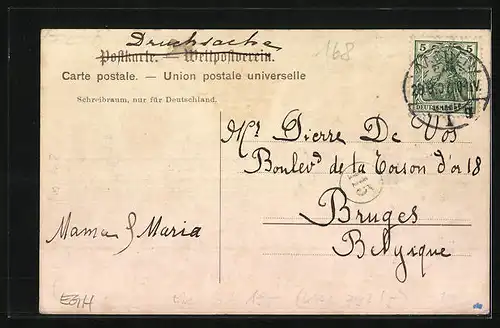 Drucksache
168
Postkarte. — Weltpostverein.
Carte postale. — Union postale universelle
Schreibraum, nur für Deutschland.
5 5
DEUTSCHES
Mr Pierre De Vos
Boulevd de la Toison d'or 18
115
Bruges
Belgique
Mama & Maria
EGH